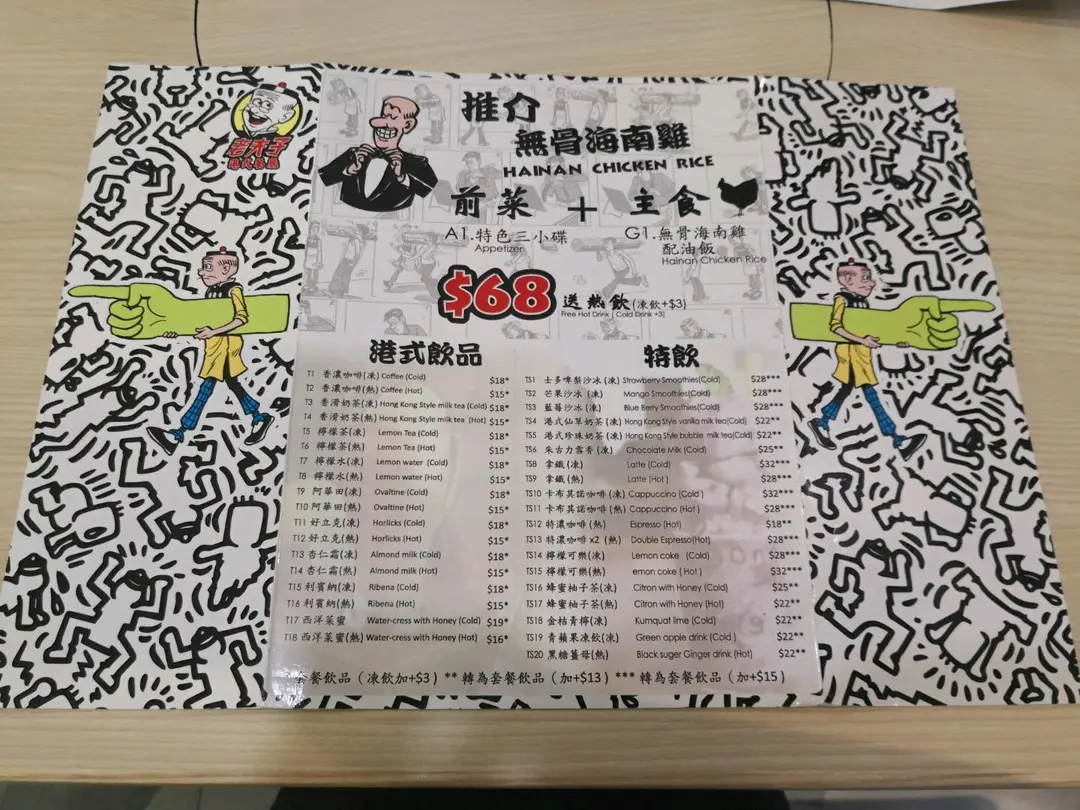 老夫子
港式茶餐
推介
無骨海南雞
HAINAN CHICKEN RICE
前菜 + 主食
A1.特色三小碟
Appetizer
G1.無骨海南雞
配油飯
Hainan Chicken Rice
$68 送熱飲(凍飲+$3)
Free Hot Drink | Cold Drink +3|
港式飲品
T1 香濃咖啡(凍) Coffee (Cold) $18*
T2 香濃咖啡(熱) Coffee (Hot) $15*
T3 香滑奶茶(凍) Hong Kong Style milk tea (Cold) $18*
T4 香滑奶茶(熱) Hong Kong Style milk tea (Hot) $15*
T5 檸檬茶(凍) Lemon Tea (Cold) $18*
T6 檸檬茶(熱) Lemon Tea (Hot) $15*
T7 檸檬水(凍) Lemon water (Cold) $18*
T8 檸檬水(熱) Lemon water (Hot) $15*
T9 阿華田(凍) Ovaltine (Cold) $18*
T10 阿華田(熱) Ovaltine (Hot) $15*
T11 好立克(凍) Horlicks (Cold) $18*
T12 好立克(熱) Horlicks (Hot) $15*
T13 杏仁霜(凍) Almond milk (Cold) $18*
T14 杏仁霜(熱) Almond milk (Hot) $15*
T15 利賓納(凍) Ribena (Cold) $18*
T16 利賓納(熱) Ribena (Hot) $15*
T17 西洋菜蜜 Water-cress with Honey (Cold) $19*
T18 西洋菜蜜(熱) Water-cress with Honey (Hot) $16*
特飲
TS1 士多啤梨沙冰(凍) Strawberry Smoothies(Cold) $28***
TS2 芒果沙冰(凍) Mango Smoothies(Cold) $28***
TS3 藍莓沙冰(凍) Blue Berry Smoothies(Cold) $28***
TS4 港式仙草奶茶(凍) Hong Kong Style vanilla milk tea(Cold) $22**
TS5 港式珍珠奶茶(凍) Hong Kong Style bubble milk tea(Cold) $22**
TS6 朱古力雪奇(凍) Chocolate Milk (Cold) $25**
TS8 拿鐵(凍) Latte (Cold) $32***
TS9 拿鐵(熱) Latte (Hot) $28***
TS10 卡布其諾咖啡(凍) Cappuccino (Cold) $32***
TS11 卡布其諾咖啡(熱) Cappuccino (Hot) $28***
TS12 特濃咖啡(熱) Espresso (Hot) $18**
TS13 特濃咖啡x2(熱) Double Espresso(Hot) $28***
TS14 檸檬可樂(凍) Lemon coke (Cold) $28***
TS15 檸檬可樂(熱) emon coke (Hot) $32***
TS16 蜂蜜柚子茶(凍) Citron with Honey (Cold) $25**
TS17 蜂蜜柚子茶(熱) Citron with Honey (Hot) $22**
TS18 金桔青檸(凍) Kumquat lime (Cold) $22**
TS19 青蘋果凍飲(凍) Green apple drink (Cold) $22**
TS20 黑糖薑母(熱) Black suger Ginger drink (Hot) $22**
套餐飲品(凍飲加+$3) ** 轉為套餐飲品(加+$13) *** 轉為套餐飲品(加+$15)